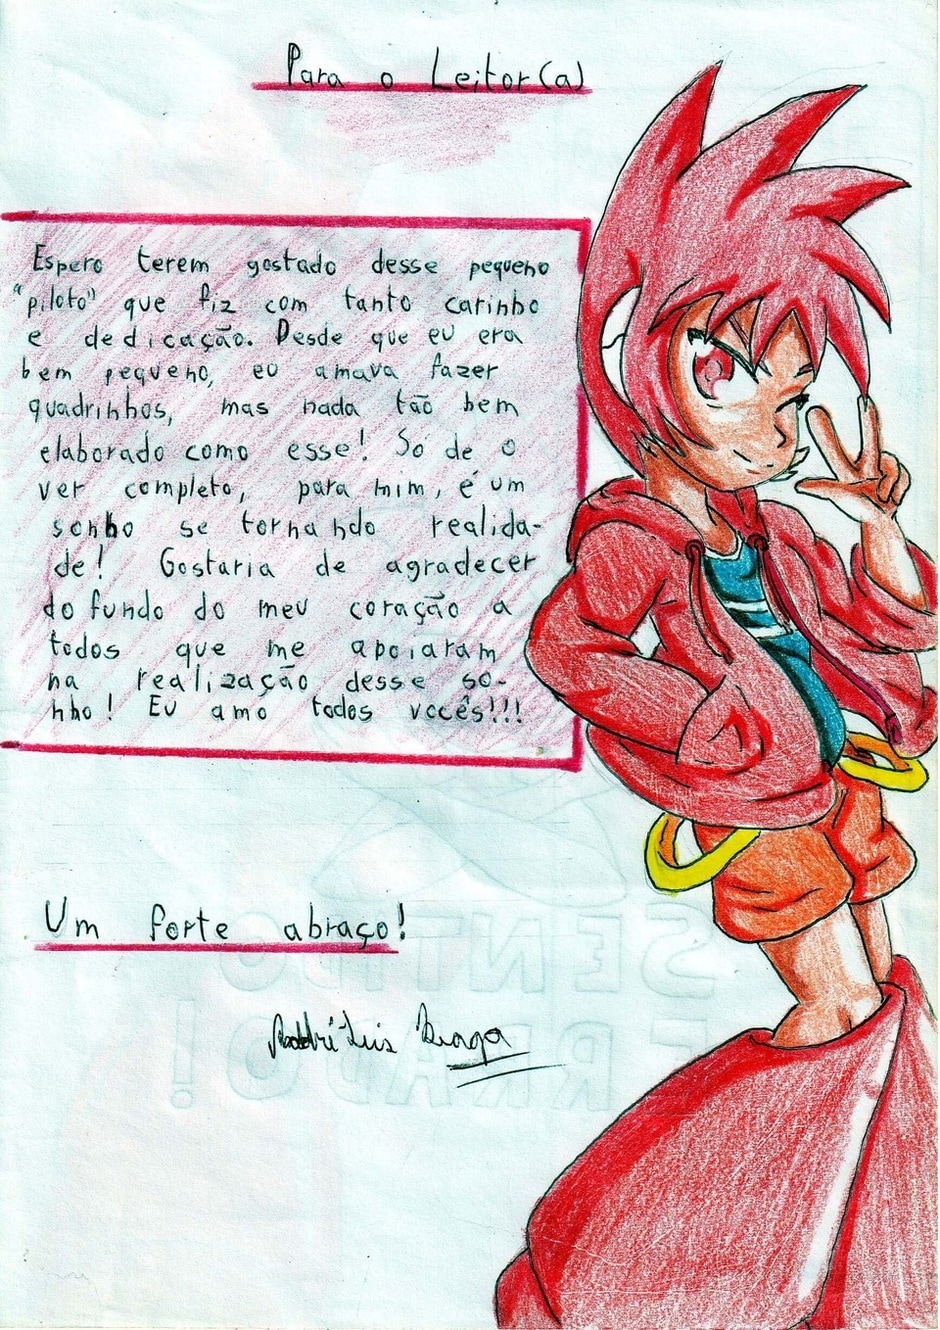 Para o Leitor(a)
Espero terem gostado desse pequeno
"piloto" que fiz com tanto carinho
e dedicação. Desde que eu era
bem pequeno, eu amava fazer
quadrinhos, mas nada tão bem
elaborado como esse! Só de o
ver completo, para mim, é um
sonho se tornando realida-
de! Gostaria de agradecer
do fundo do meu coração a
todos que me apoiaram
na realização desse so-
nho! Eu amo todos vocês!!!
Um forte abraço!
Luis Braga
SENTIDO